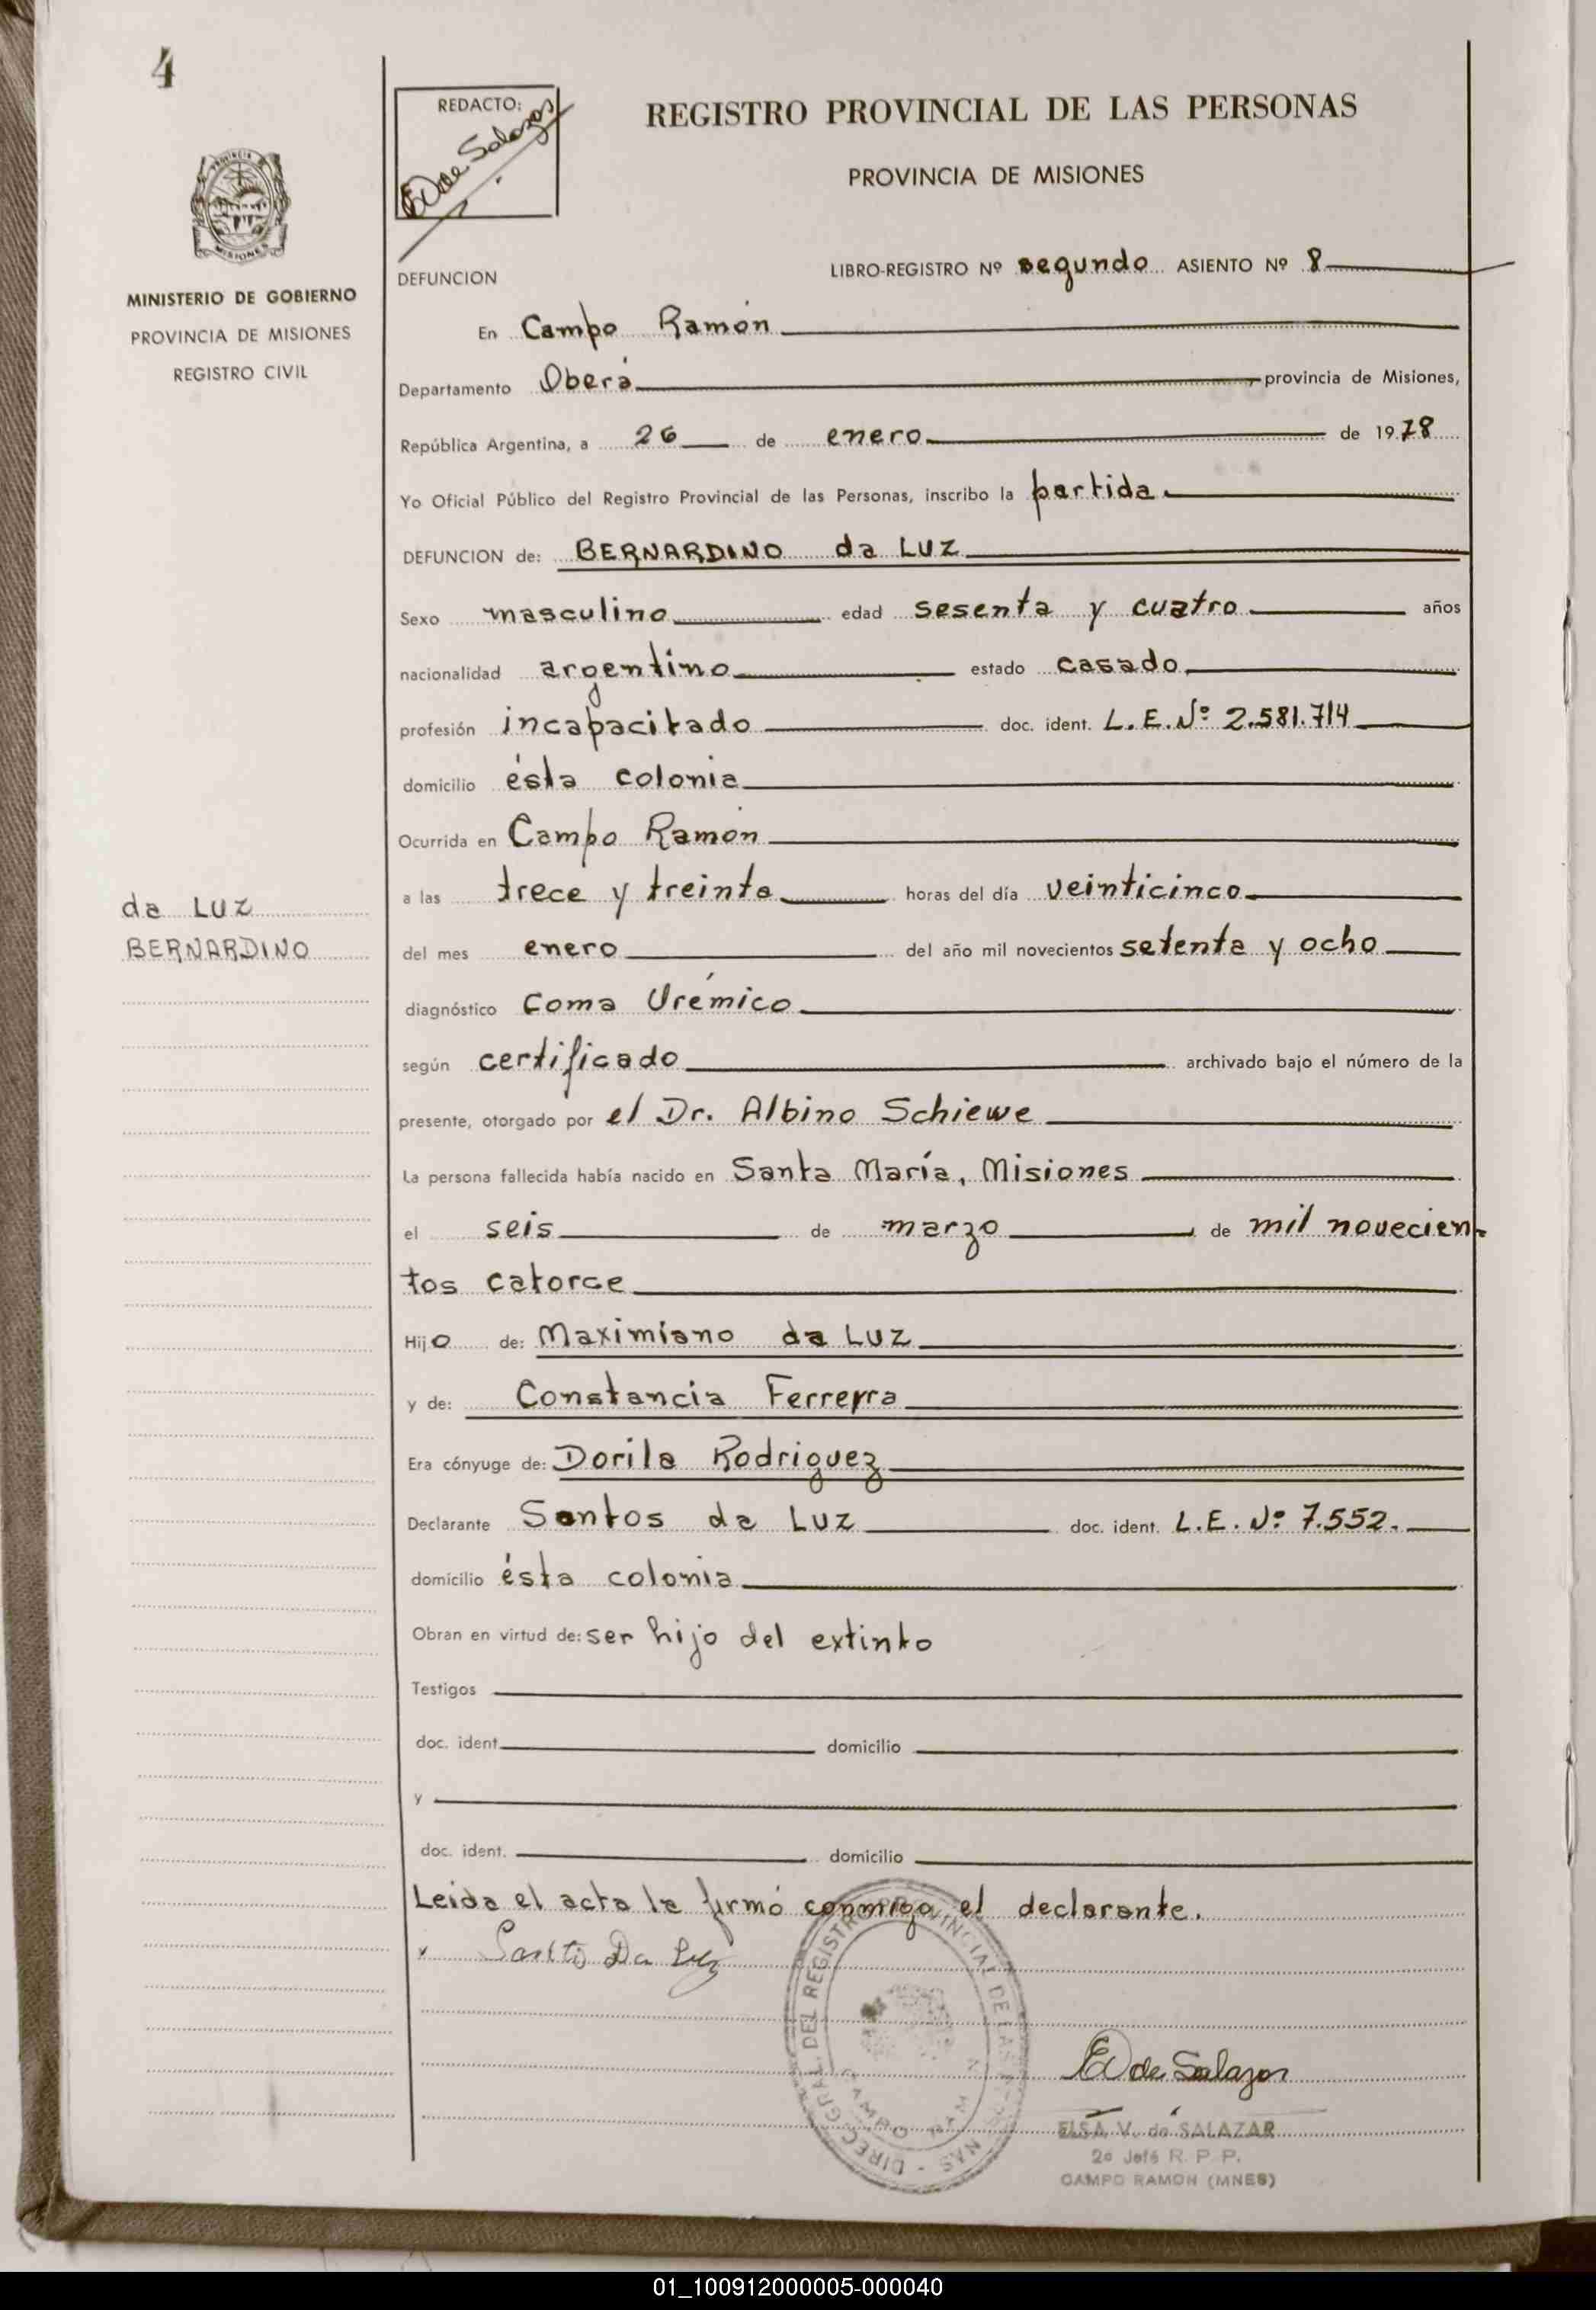 4
REDACTO:
E V de Salazar
REGISTRO PROVINCIAL DE LAS PERSONAS
PROVINCIA DE MISIONES
PROVINCIA
MISIONES
MINISTERIO DE GOBIERNO
PROVINCIA DE MISIONES
REGISTRO CIVIL
LIBRO-REGISTRO Nº segundo ASIENTO Nº 8
DEFUNCION
En Campo Ramón
Departamento Oberá provincia de Misiones,
República Argentina, a 26 de enero de 1978
Yo Oficial Público del Registro Provincial de las Personas, inscribo la partida
DEFUNCION de: BERNARDINO da LUZ
Sexo masculino edad sesenta y cuatro años
nacionalidad argentino estado casado
profesión incapacitado doc. ident. L.E.Nº 2.581.714
domicilio ésta colonia
Ocurrida en Campo Ramón
a las trece y treinta horas del día veinticinco
da LUZ
BERNARDINO
del mes enero del año mil novecientos setenta y ocho
diagnóstico Coma Urémico
según certificado archivado bajo el número de la
presente, otorgado por el Dr. Albino Schiewe
La persona fallecida había nacido en Santa María, Misiones
el seis de marzo de mil novecien-
tos catorce
Hijo de: Maximiano da LUZ
y de: Constancia Ferreyra
Era cónyuge de: Dorila Rodriguez
Declarante Santos da LUZ doc. ident. L.E. Nº 7.552.
domicilio ésta colonia
Obran en virtud de: ser hijo del extinto
Testigos
doc. ident. domicilio
y
doc. ident. domicilio
Leida el acta la firmó conmigo el declarante.
Santos Da Luz
DIREC. GRAL. DEL REGISTRO PROVINCIAL DE LAS PERSONAS
CAMPO RAMON
E V de Salazar
ELSA V. de SALAZAR
2º Jefe R. P. P.
CAMPO RAMON (MNES)
01_100912000005-000040